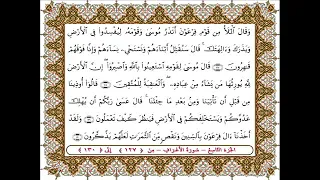 وَقَالَ ٱلْمَلَأُ مِن قَوْمِ فِرْعَوْنَ أَتَذَرُ مُوسَىٰ وَقَوْمَهُۥ لِيُفْسِدُوا۟ فِى ٱلْأَرْضِ
وَيَذَرَكَ وَءَالِهَتَكَ ۚ قَالَ سَنُقَتِّلُ أَبْنَآءَهُمْ وَنَسْتَحْىِۦ نِسَآءَهُمْ وَإِنَّا فَوْقَهُمْ
قَٰهِرُونَ ١٢٧ قَالَ مُوسَىٰ لِقَوْمِهِ ٱسْتَعِينُوا۟ بِٱللَّهِ وَٱصْبِرُوٓا۟ ۖ إِنَّ ٱلْأَرْضَ
لِلَّهِ يُورِثُهَا مَن يَشَآءُ مِنْ عِبَادِهِۦ ۖ وَٱلْعَٰقِبَةُ لِلْمُتَّقِينَ ١٢٨ قَالُوٓا۟ أُوذِينَا
مِن قَبْلِ أَن تَأْتِيَنَا وَمِنۢ بَعْدِ مَا جِئْتَنَا ۚ قَالَ عَسَىٰ رَبُّكُمْ أَن يُهْلِكَ
عَدُوَّكُمْ وَيَسْتَخْلِفَكُمْ فِى ٱلْأَرْضِ فَيَنظُرَ كَيْفَ تَعْمَلُونَ ١٢٩ وَلَقَدْ
أَخَذْنَآ ءَالَ فِرْعَوْنَ بِٱلسِّنِينَ وَنَقْصٍ مِّنَ ٱلثَّمَرَٰتِ لَعَلَّهُمْ يَذَّكَّرُونَ ١٣٠
الجزء التاسع - سورة الأعراف - من (١٢٧) إلى (١٣٠)